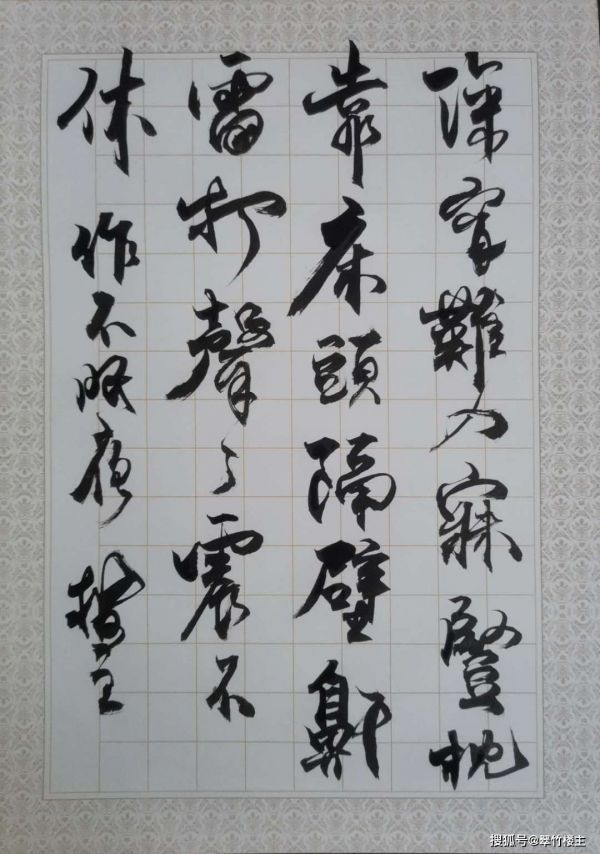 深宵難入寐豎枕
靠床頭隔壁鼾
雷打聲々震不
休 作不眠夜 樓主
搜狐号@翠竹楼主